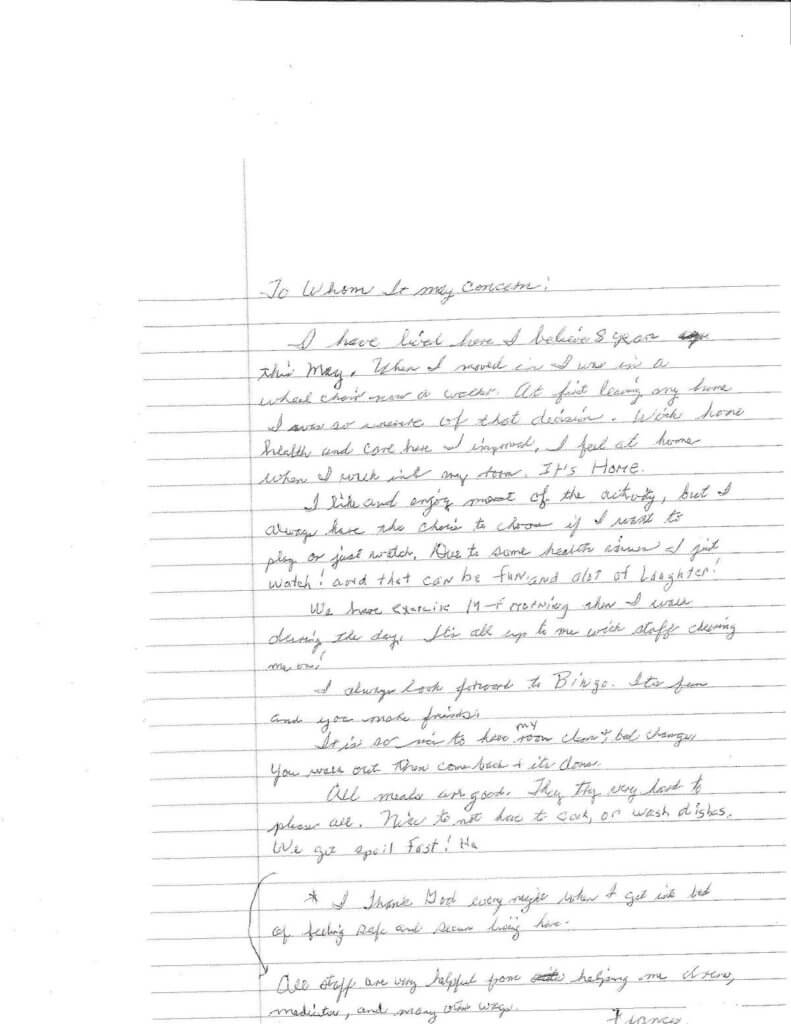 To Whom It may Concern:
I have lived here I believe 8 year
this May. When I moved in I was in a
wheel chair now a walker. At first leaving my home
I was so unsure of that decision. With home
health and care here I improved, I feel at home
when I walk into my room. It's Home.
I like and enjoy most of the activity, but I
always have the choice to choose if I want to
play or just watch. Due to some health issues I just
watch! and that can be fun and alot of Laughter!
We have Exercise morning then I walk
during the day. It's all up to me with staff cheering
me on!
I always look forward to Bingo. Its fun
and you make friends.
It is so nice to have my room clean & bed change.
You walk out then come back & its done.
All meals are good. They Try very hard to
please all. Nice to not have to cook, or wash dishes.
We get spoil Fast! Ha
* I Thank God every night when I get into bed
of feeling safe and secure living here.
All staff are very helpful from helping me dress,
medication, and many other ways.
Frances